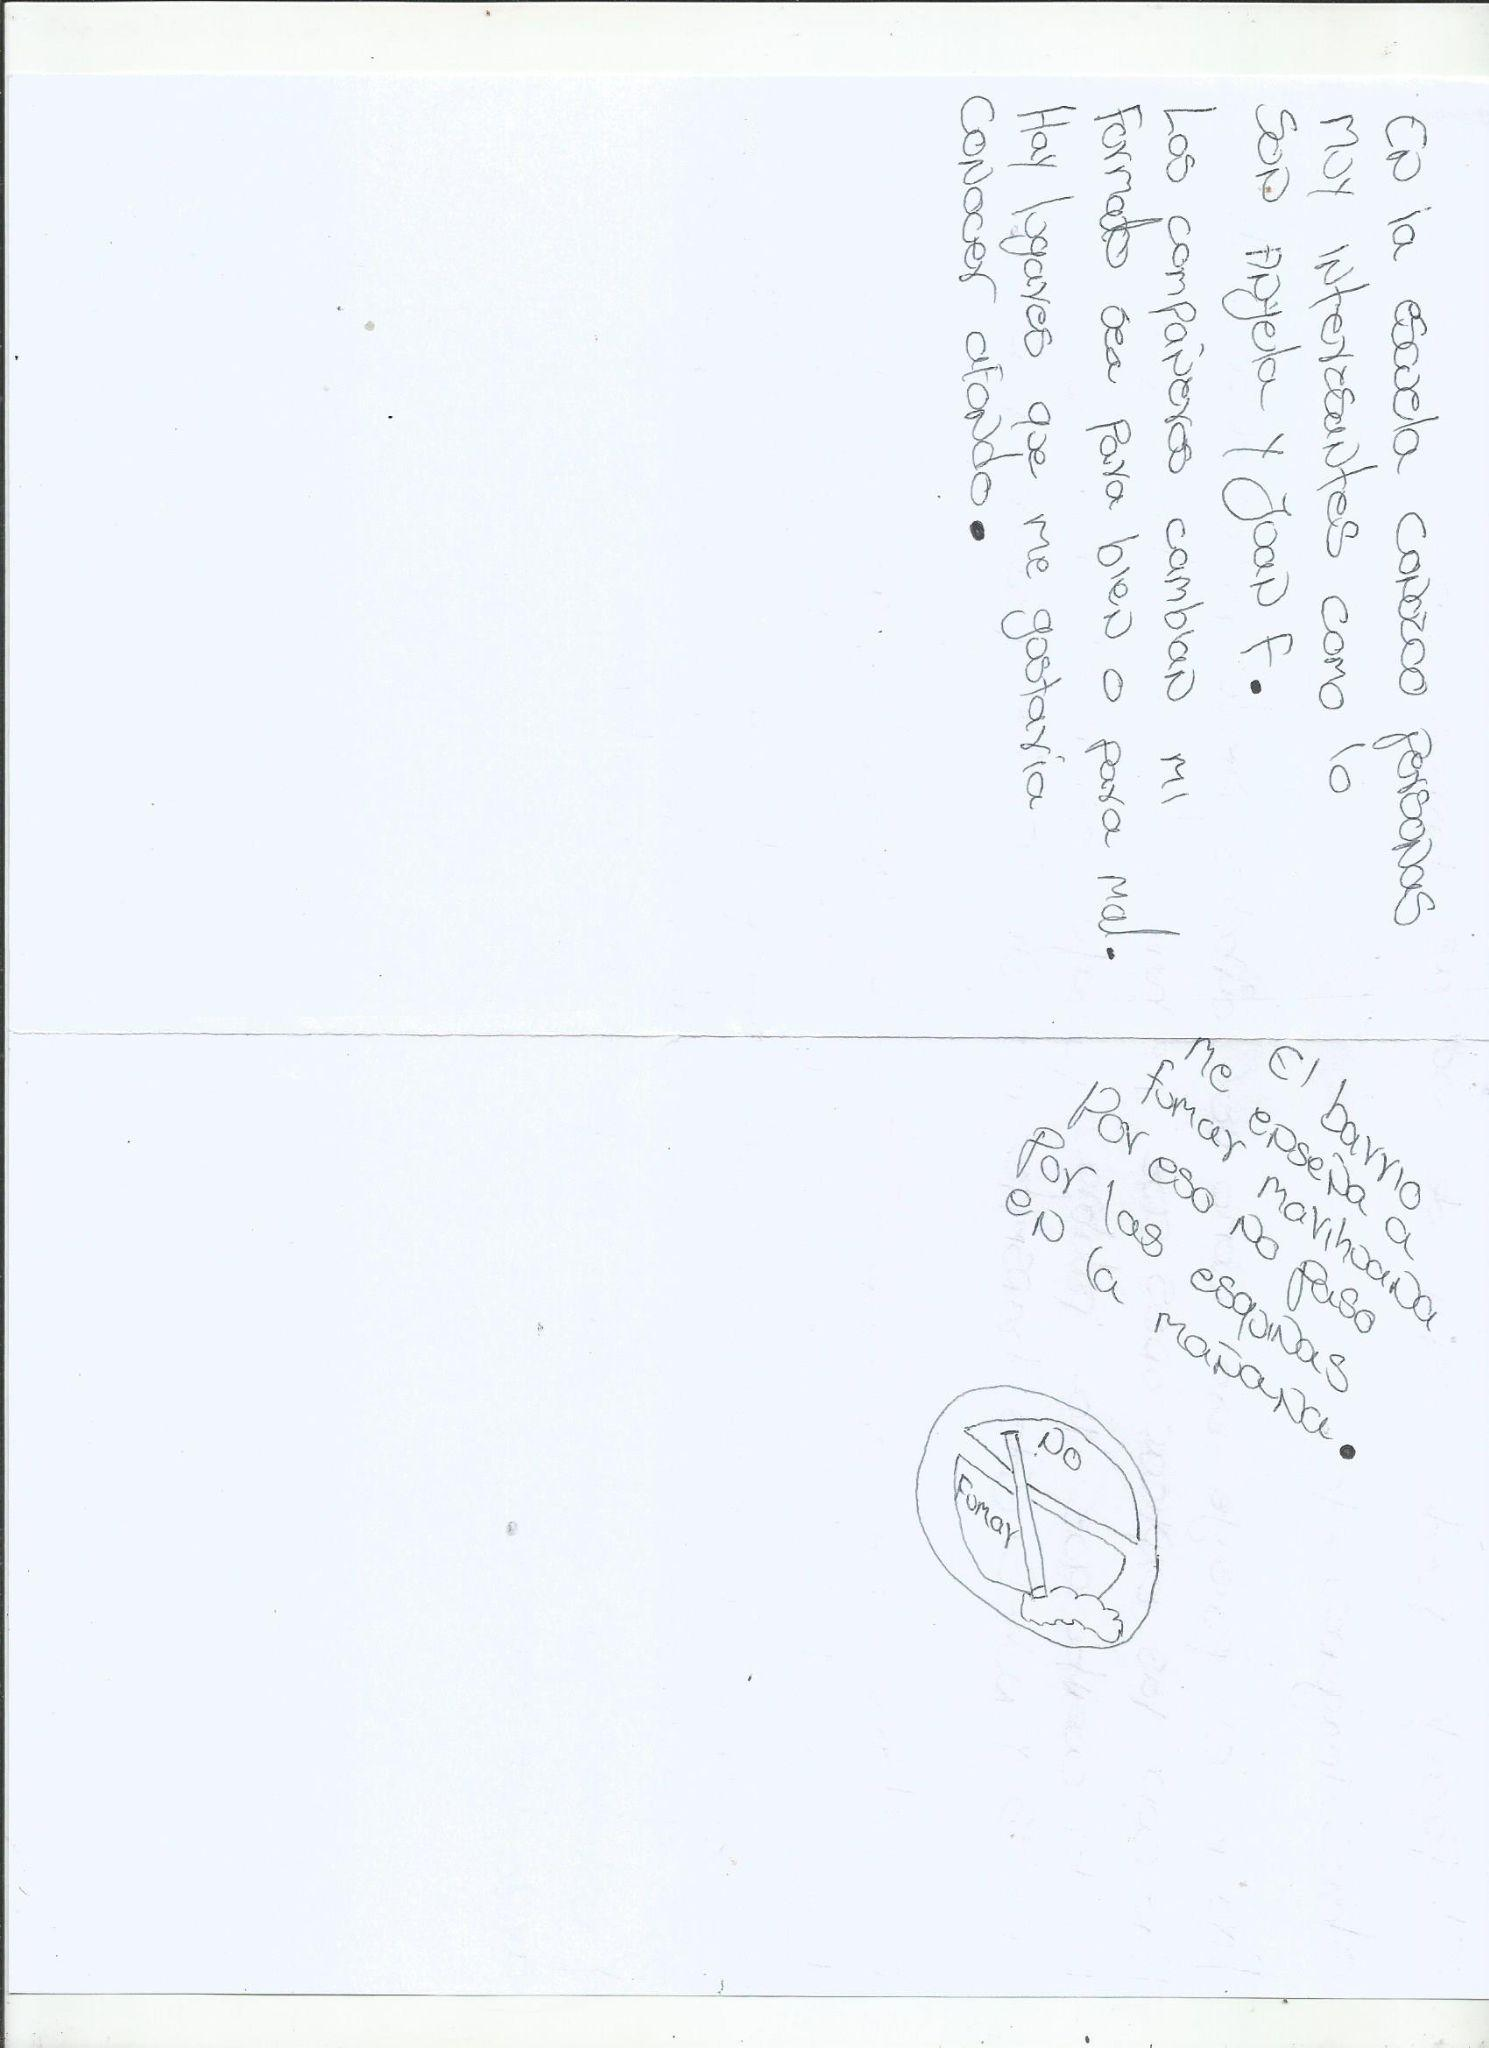 En la escuela conozco personas
muy interesantes como lo
son Angela y Joan F.
Los compañeros cambian mi
formato sea para bien o para mal.
Hay lugares que me gostaría
conocer afondo.
El barrio
me enseña a
fumar marihuana
por eso no paso
por las esquinas
en la mañana.
No
Fumar